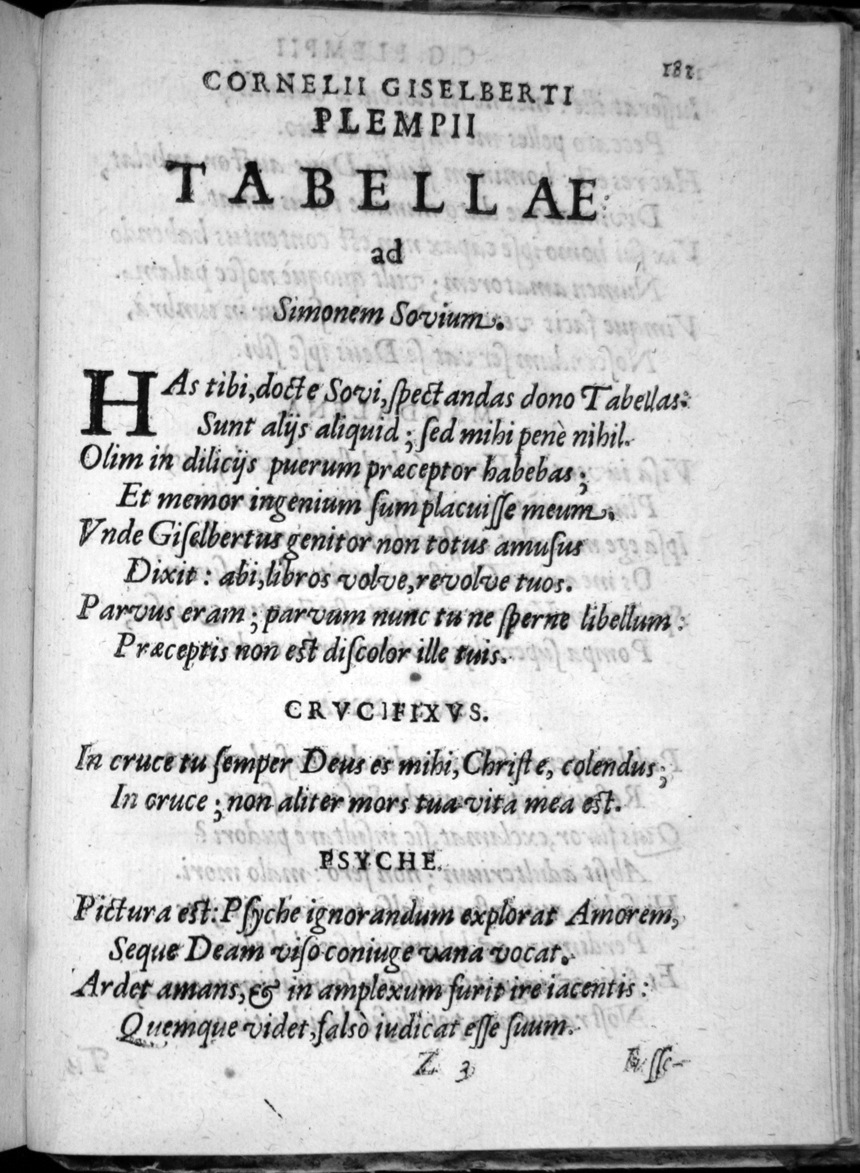 181
CORNELII GISELBERTI
PLEMPII
TABELLAE
ad
Simonem Sovium.
HAs tibi, docte Sovi, spectandas dono Tabellas:
Sunt alijs aliquid; sed mihi penè nihil.
Olim in dilicijs puerum præceptor habebas;
Et memor ingenium sum placuisse meum.
Vnde Giselbertus genitor non totus amusus
Dixit: abi, libros volve, revolve tuos.
Parvus eram; parvum nunc tu ne sperne libellum:
Præceptis non est discolor ille tuis.
CRVCIFIXVS.
In cruce tu semper Deus es mihi, Christe, colendus;
In cruce; non aliter mors tua vita mea est.
PSYCHE.
Pictura est: Psyche ignorandum explorat Amorem,
Seque Deam viso coniuge vana vocat.
Ardet amans, & in amplexum furit ire iacentis:
Quemque videt, falsò iudicat esse suum.
Z 3 Esse-